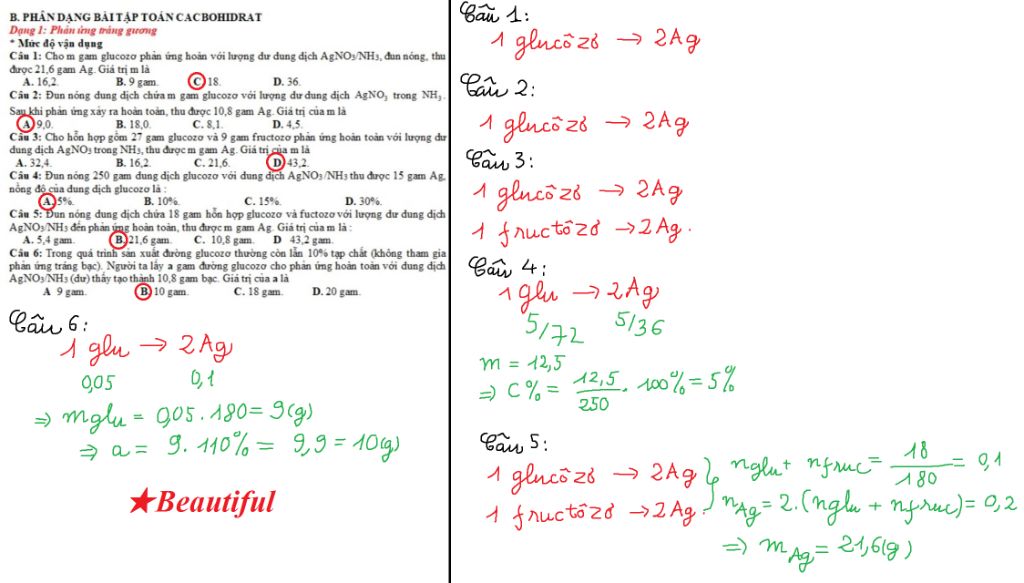 B. PHÂN DẠNG BÀI TẬP TOÁN CACBOHIDRAT
Dạng 1: Phản ứng tráng gương
* Mức độ vận dụng
Câu 1: Cho m gam glucozơ phản ứng hoàn với lượng dư dung dịch AgNO3/NH3, đun nóng, thu
được 21,6 gam Ag. Giá trị m là
A. 16,2. B. 9 gam. C. 18. D. 36.
Câu 2: Đun nóng dung dịch chứa m gam glucozơ với lượng dư dung dịch AgNO3 trong NH3.
Sau khi phản ứng xảy ra hoàn toàn, thu được 10,8 gam Ag. Giá trị của m là
A. 9,0. B. 18,0. C. 8,1. D. 4,5.
Câu 3: Cho hỗn hợp gồm 27 gam glucozơ và 9 gam fructozơ phản ứng hoàn toàn với lượng dư
dung dịch AgNO3 trong NH3, thu được m gam Ag. Giá trị của m là
A. 32,4. B. 16,2. C. 21,6. D. 43,2.
Câu 4: Đun nóng 250 gam dung dịch glucozơ với dung dịch AgNO3/NH3 thu được 15 gam Ag,
nồng độ của dung dịch glucozơ là :
A. 5%. B. 10%. C. 15%. D. 30%.
Câu 5: Đun nóng dung dịch chứa 18 gam hỗn hợp glucozơ và fuctozơ với lượng dư dung dịch
AgNO3/NH3 đến phản ứng hoàn toàn, thu được m gam Ag. Giá trị của m là :
A. 5,4 gam. B. 21,6 gam. C. 10,8 gam. D 43,2 gam.
Câu 6: Trong quá trình sản xuất đường glucozơ thường còn lẫn 10% tạp chất (không tham gia
phản ứng tráng bạc). Người ta lấy a gam đường glucozơ cho phản ứng hoàn toàn với dung dịch
AgNO3/NH3 (dư) thấy tạo thành 10,8 gam bạc. Giá trị của a là
A 9 gam. B. 10 gam. C. 18 gam. D. 20 gam.
Câu 6:
1 glu → 2Ag
0,05 0,1
⇒ mglu = 0,05.180 = 9(g)
⇒ a = 9.110% = 9,9 = 10(g)
★Beautiful
Câu 1:
1 glucôzơ → 2Ag
Câu 2:
1 glucôzơ → 2Ag
Câu 3:
1 glucôzơ → 2Ag
1 fructôzơ → 2Ag.
Câu 4:
1 glu → 2Ag
5/72 5/36
m = 12,5
⇒ C% = 12,5/250 . 100% = 5%
Câu 5:
1 glucôzơ → 2Ag
1 fructôzơ → 2Ag.
nglu + nfruc = 18/180 = 0,1
nAg = 2.(nglu + nfruc) = 0,2
⇒ mAg = 21,6(g)